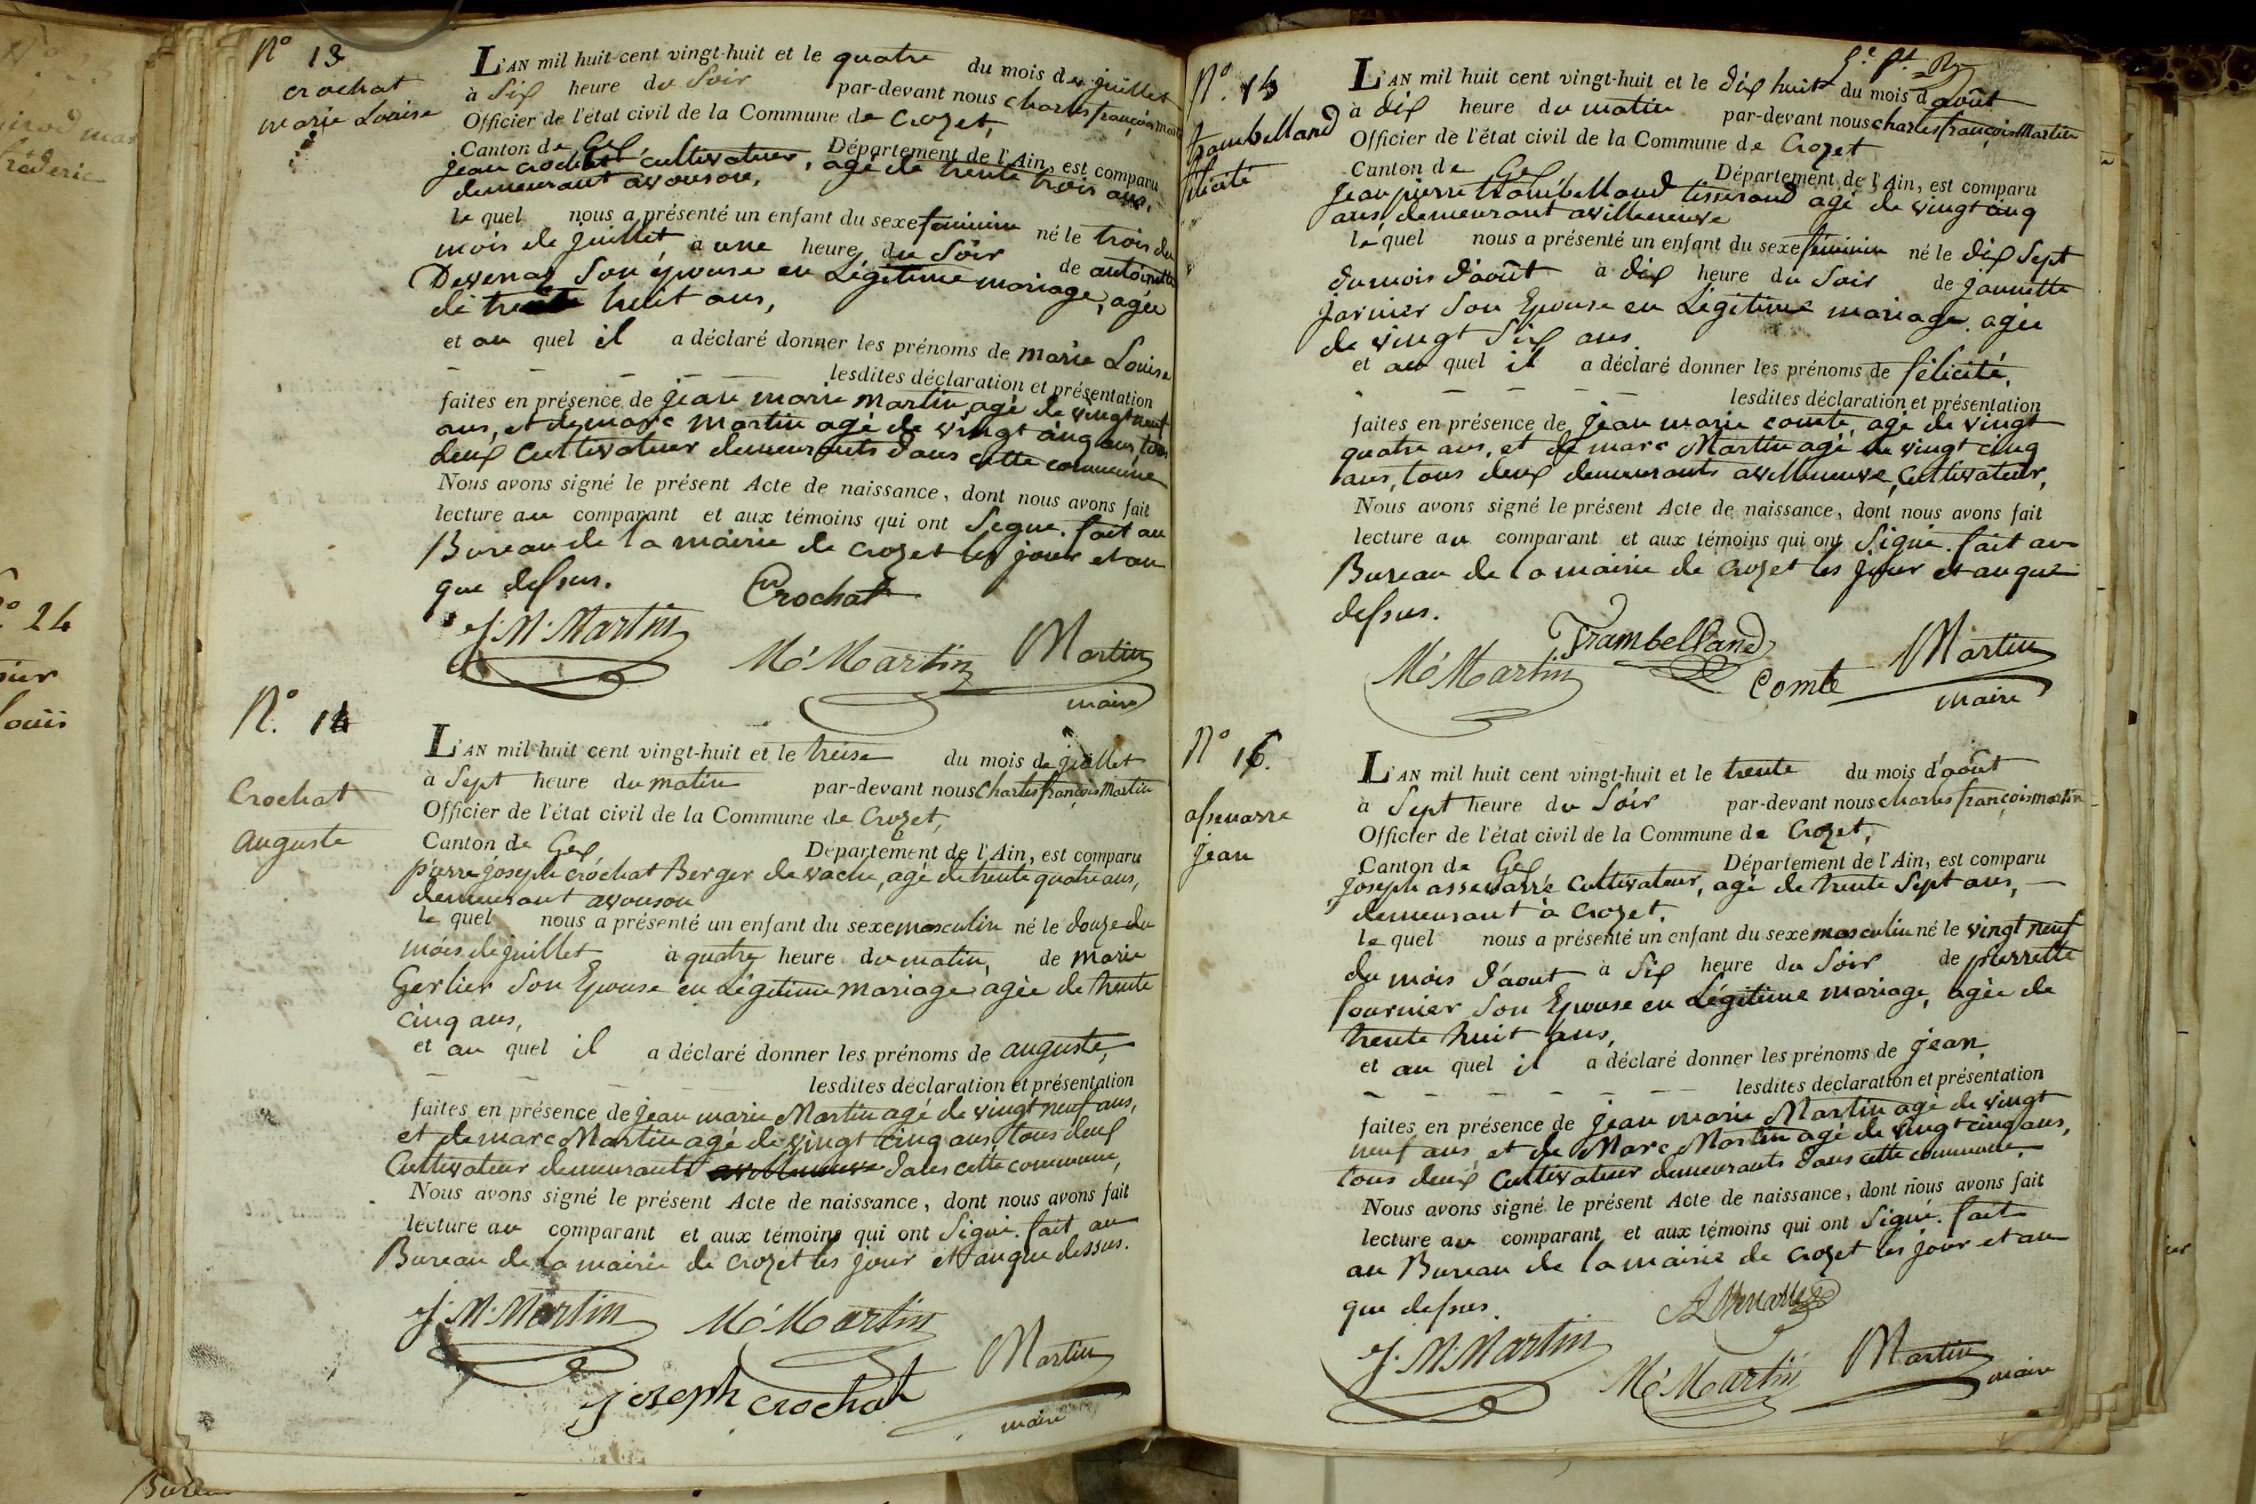 N.º 13
crochat
marie Louise
L'AN mil huit cent vingt-huit et le quatre du mois de juillet
à Six heure du Soir par-devant nous charles françois martin
Officier de l'état civil de la Commune de Crozet,
Canton de Gex Département de l'Ain, est comparu
jean crochat cultivateur, agé de trente trois ans,
demeurant avouson,
le quel nous a présenté un enfant du sexe feminin né le trois du
mois de juillet à une heure du Soir de antoinette
Devenaz Son épouse en Légitime mariage, agée
de trente huit ans,
et au quel il a déclaré donner les prénoms de marie Louise
lesdites déclaration et présentation
faites en présence de jean marie martin agé de vingt neuf
ans, et de marc martin agé de vingt cinq ans, tous
deux Cultivateur demeurants dans cette commune
Nous avons signé le présent Acte de naissance, dont nous avons fait
lecture au comparant et aux témoins qui ont Signé. fait au
Bureau de la mairie de crozet les jour et an
que dessus.
Crochat
J. M. Martin
Mc Martin
Martin
maire
N.º 14
Crochat
auguste
L'AN mil huit cent vingt-huit et le treise du mois de juillet
à Sept heure du matin par-devant nous Charles françois Martin
Officier de l'état civil de la Commune de Crozet,
Canton de Gex Département de l'Ain, est comparu
pierre joseph crochat Berger de vache, agé de trente quatre ans,
demeurant avouson
le quel nous a présenté un enfant du sexe masculin né le douze du
mois de juillet à quatre heure du matin, de marie
Gerlier Son Epouse en Légitime mariage agée de trente
cinq ans,
et au quel il a déclaré donner les prénoms de auguste,
lesdites déclaration et présentation
faites en présence de jean marie Martin agé de vingt neuf ans,
et de marc Martin agé de vingt cinq ans, tous deux
Cultivateur demeurants avilleneuve dans cette commune,
Nous avons signé le présent Acte de naissance, dont nous avons fait
lecture au comparant et aux témoins qui ont Signé. fait au
Bureau de la mairie de crozet les jour et an que dessus.
J. M. Martin
Mc Martin
Martin
joseph crochat
maire
N.º 15
trambelland
félicité
L'AN mil huit cent vingt-huit et le dix huit du mois d'août
à dix heure du matin par-devant nous charles françois Martin
Officier de l'état civil de la Commune de Crozet
Canton de Gex Département de l'Ain, est comparu
jean pierre trambelland tisserand agé de vingt cinq
ans, demeurant avilleneuve
le quel nous a présenté un enfant du sexe féminin né le dix Sept
du mois d'août à dix heure du Soir de jannette
jarnier Son Epouse en Légitime mariage, agée
de vingt Six ans
et au quel il a déclaré donner les prénoms de félicité,
lesdites déclaration et présentation
faites en présence de jean marie comte, agé de vingt
quatre ans, et de marc Martin agé de vingt cinq
ans, tous deux demeurants avilleneuve, Cultivateur,
Nous avons signé le présent Acte de naissance, dont nous avons fait
lecture au comparant et aux témoins qui ont Signé. fait au
Bureau de la mairie de crozet les jour et an que
dessus.
Trambelland
Mc Martin
Comte
Martin
maire
N.º 16.
assenarre
jean
L'AN mil huit cent vingt-huit et le trente du mois d'août
à Sept heure du Soir par-devant nous charles françois martin
Officier de l'état civil de la Commune de Crozet,
Canton de Gex Département de l'Ain, est comparu
joseph assenarre Cultivateur, agé de trente Sept ans,
demeurant à Crozet,
le quel nous a présenté un enfant du sexe masculin né le vingt neuf
du mois d'aout à Six heure du Soir de pierrette
fournier Son Epouse en Légitime mariage, agée de
trente huit ans,
et au quel il a déclaré donner les prénoms de jean,
lesdites déclaration et présentation
faites en présence de jean marie Martin agé de vingt
neuf ans, et de Marc Martin agé de vingt cinq ans,
tous deux Cultivateur demeurants dans cette commune,
Nous avons signé le présent Acte de naissance, dont nous avons fait
lecture au comparant et aux témoins qui ont Signé. fait
au Bureau de la mairie de crozet les jour et an
que dessus.
J. M. Martin
Mc Martin
Martin
maire